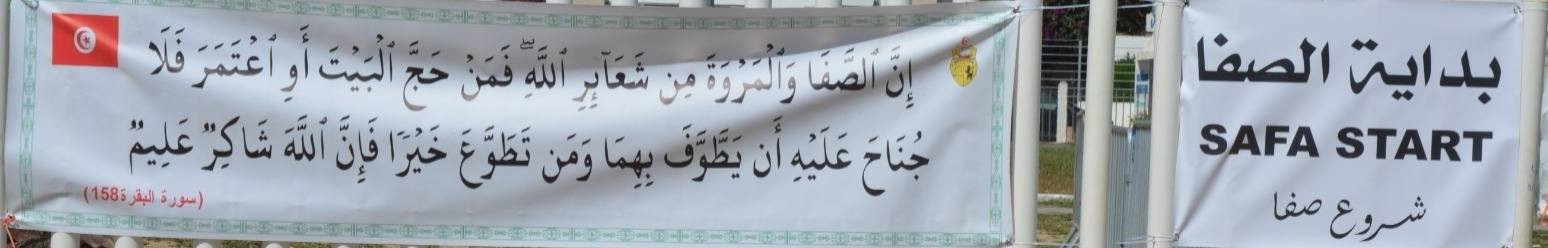 إِنَّ ٱلصَّفَا وَٱلْمَرْوَةَ مِن شَعَآئِرِ ٱللَّهِۖ فَمَنْ حَجَّ ٱلْبَيْتَ أَوِ ٱعْتَمَرَ فَلَا
جُنَاحَ عَلَيْهِ أَن يَطَّوَّفَ بِهِمَا وَمَن تَطَوَّعَ خَيْرًا فَإِنَّ ٱللَّهَ شَاكِرٌ عَلِيمٌ
(سورة البقرة158)
بداية الصفا
SAFA START
شروع صفا